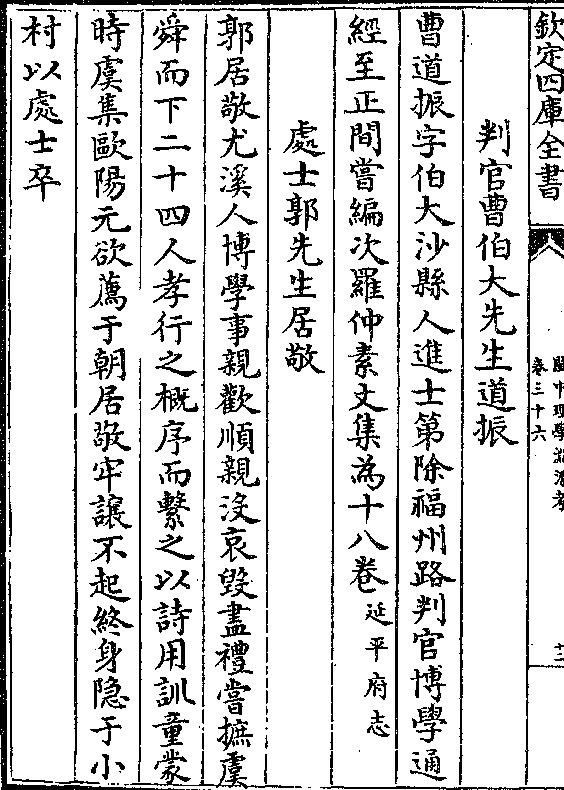 欽定四庫全書
卷三十六
判官曹伯大先生道振
曹道振字伯大沙縣人進士第除福州路判官博學通
經至正間嘗編次羅仲素文集為十八卷延平府志
處士郭先生居敬
郭居敬尤溪人博學事親歡順親沒哀毀盡禮嘗摭虞
舜而下二十四人孝行之概序而繫之以詩用訓童蒙
時虞集歐陽元欲薦于朝居敬牢讓不起終身隐于小
村以處士卒